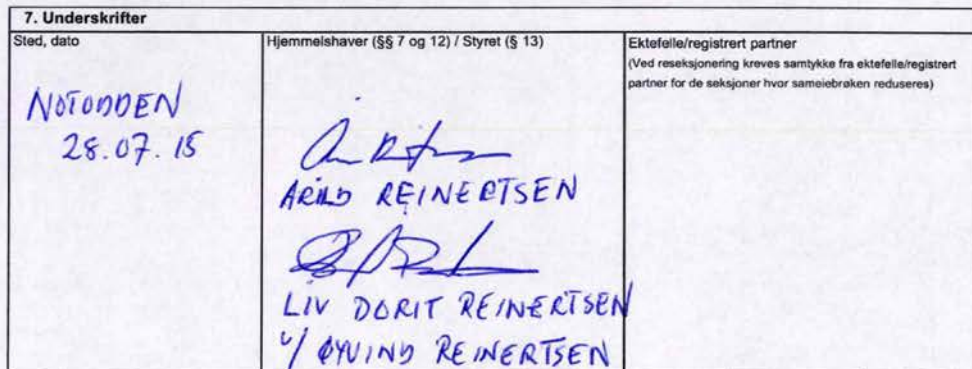 7. Underskrifter
Sted, dato
Hjemmelshaver (§§ 7 og 12) / Styret (§ 13)
Ektefelle/registrert partner
(Ved reseksjonering kreves samtykke fra ektefelle/registrert
partner for de seksjoner hvor sameiebrøken reduseres)
NOTODDEN
28.07.15
ARILD REINERTSEN
LIV DORIT REINERTSEN
v/ ØYVIND REINERTSEN